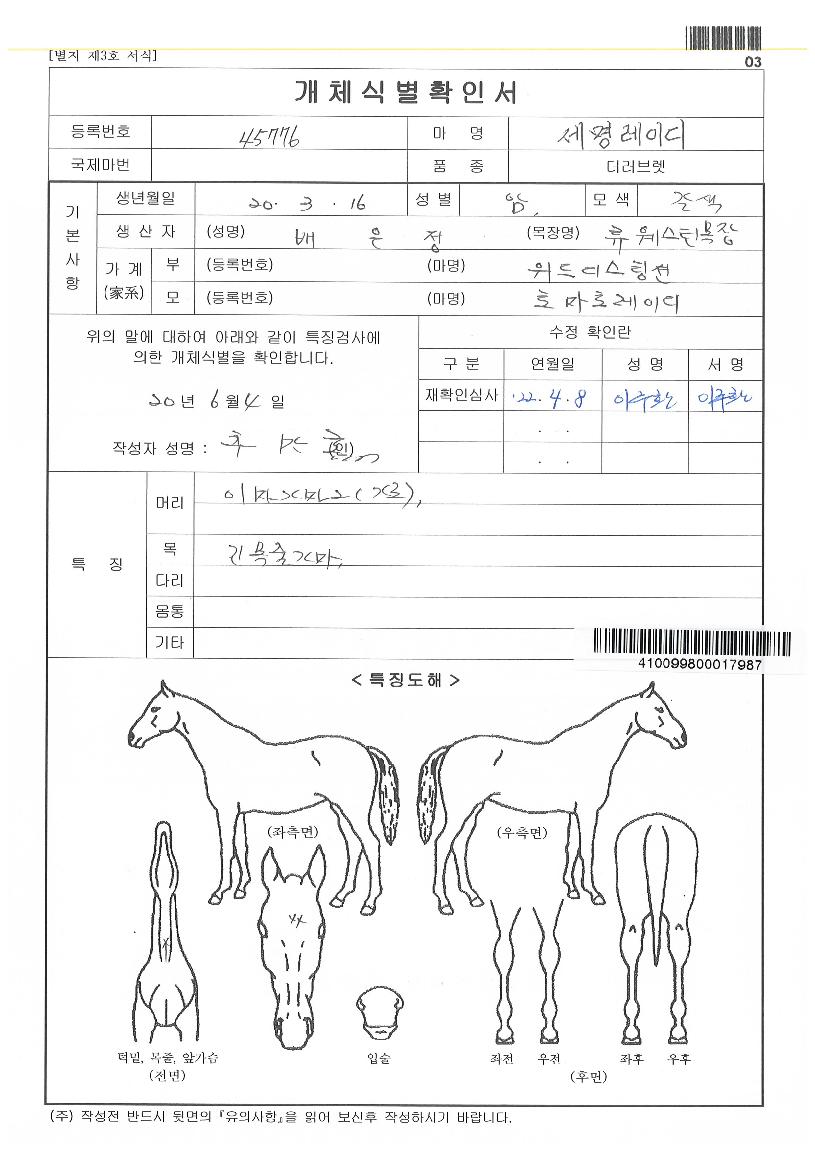 [별지 제3호 서식]
03
개체식별확인서
등록번호 45776 마 명 세평레이디
국제마번 품 종 더러브렛
기본사항
생년월일 20. 3. 16 성별 암. 모색 갈색
생 산 자 (성명) 배 은 정 (목장명) 류웨스턴목장
가계 (家系) 부 (등록번호) (마명) 위드디스팅션
모 (등록번호) (마명) 호마호레이디
위의 말에 대하여 아래와 같이 특징검사에
의한 개체식별을 확인합니다.
20년 6월 4일
작성자 성명 : (인)
수정 확인란
구 분 연월일 성 명 서 명
재확인심사 '22. 4. 8
. .
. .
특 징
머리
목 긴목줄가마.
다리
몸통
기타
410099800017987
< 특징도해 >
(좌측면) (우측면)
턱밑, 목줄, 앞가슴
(전면)
입술
좌전 우전 좌후 우후
(후면)
(주) 작성전 반드시 뒷면의 『유의사항』을 읽어 보신후 작성하시기 바랍니다.